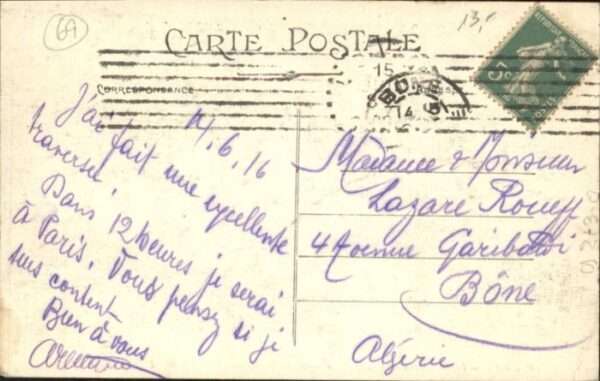 69
13,
CARTE POSTALE
15
BÔNE
14
CORRESPONDANCE
14.6.16
J'ai fait une excellente
traversé.
Dans 12 heures je serai
à Paris. Vous pensez si je
suis content
Bien à vous
Madame & Monsieur
Lazare Roueff
4 Avenue Garibaldi
Bône
Algérie